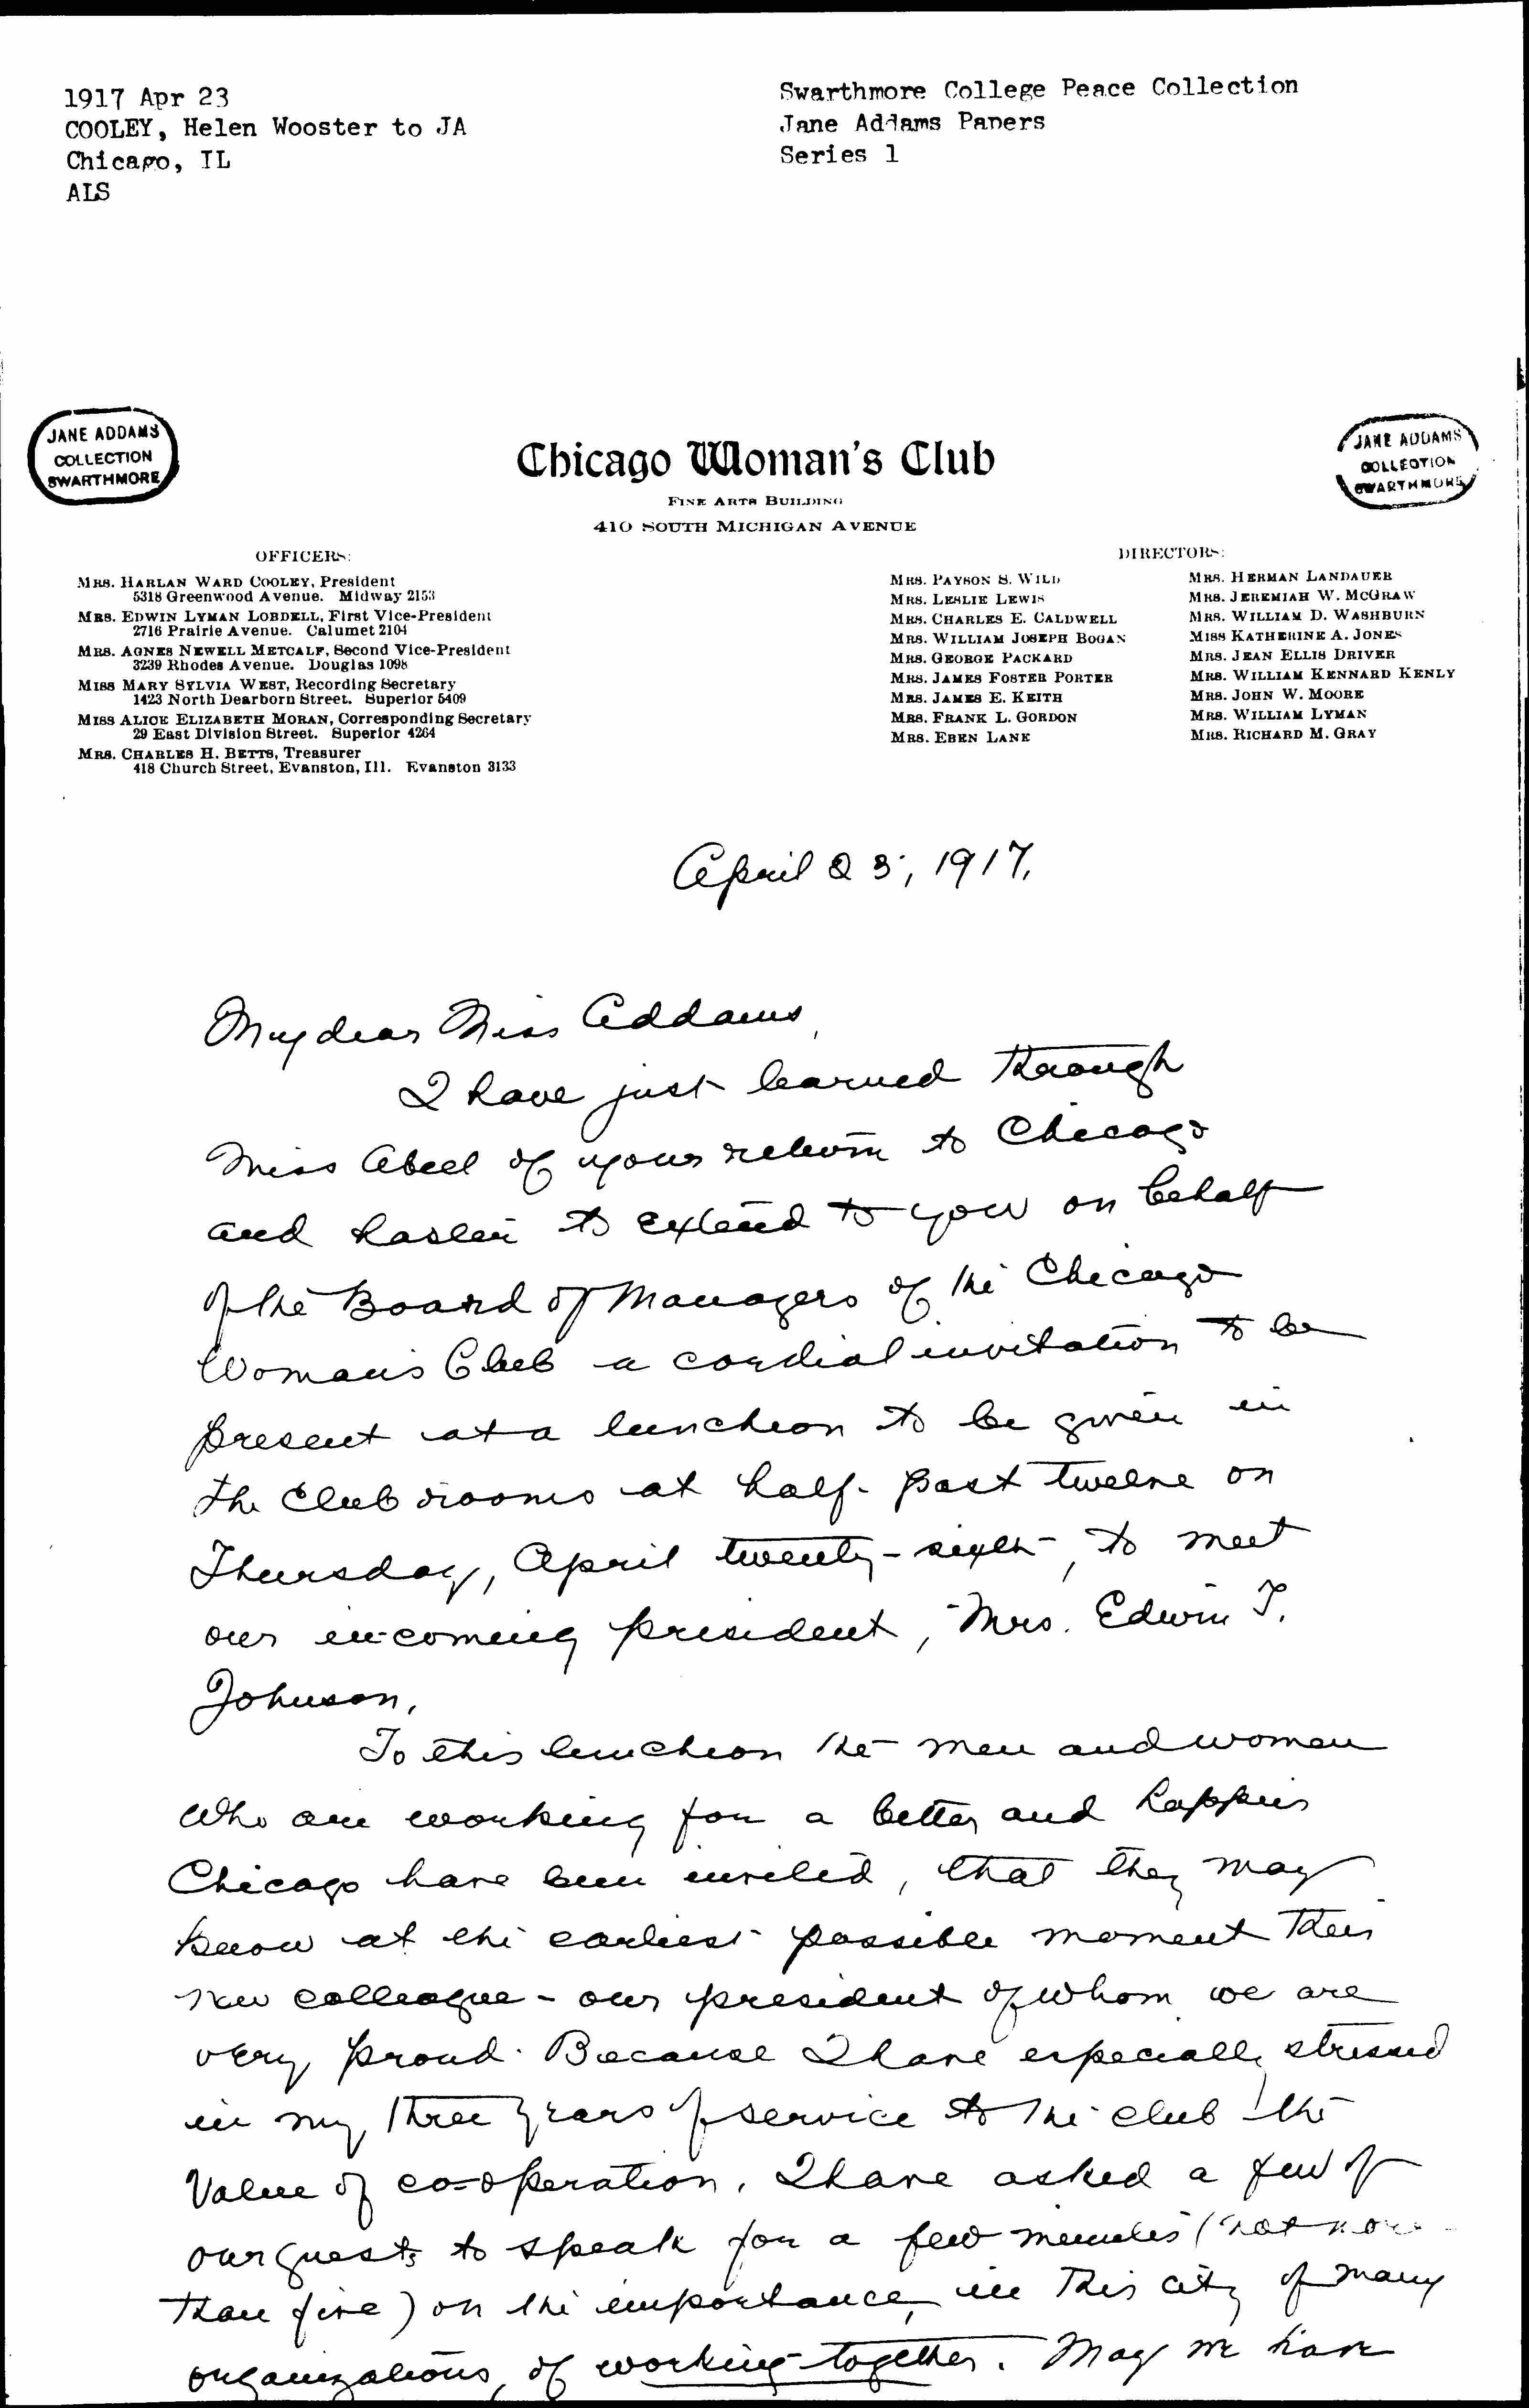 1917 Apr 23
COOLEY, Helen Wooster to JA
Chicago, IL
ALS
Swarthmore College Peace Collection
Jane Addams Papers
Series 1
JANE ADDAMS
COLLECTION
SWARTHMORE
Chicago Woman's Club
FINE ARTS BUILDING
410 SOUTH MICHIGAN AVENUE
JANE ADDAMS
COLLECTION
SWARTHMORE
OFFICERS:
MRS. HARLAN WARD COOLEY, President
5318 Greenwood Avenue. Midway 2153
MRS. EDWIN LYMAN LOBDELL, First Vice-President
2716 Prairie Avenue. Calumet 2104
MRS. AGNES NEWELL METCALF, Second Vice-President
3239 Rhodes Avenue. Douglas 1098
MISS MARY SYLVIA WEST, Recording Secretary
1423 North Dearborn Street. Superior 5409
MISS ALICE ELIZABETH MORAN, Corresponding Secretary
29 East Division Street. Superior 4264
MRS. CHARLES H. BETTS, Treasurer
418 Church Street, Evanston, Ill. Evanston 3133
DIRECTORS:
MRS. PAYSON S. WILD
MRS. LESLIE LEWIS
MRS. CHARLES E. CALDWELL
MRS. WILLIAM JOSEPH BOGAN
MRS. GEORGE PACKARD
MRS. JAMES FOSTER PORTER
MRS. JAMES E. KEITH
MRS. FRANK L. GORDON
MRS. EBEN LANE
MRS. HERMAN LANDAUER
MRS. JEREMIAH W. MCGRAW
MRS. WILLIAM D. WASHBURN
MISS KATHERINE A. JONES
MRS. JEAN ELLIS DRIVER
MRS. WILLIAM KENNARD KENLY
MRS. JOHN W. MOORE
MRS. WILLIAM LYMAN
MRS. RICHARD M. GRAY
April 23, 1917.
My dear Miss Addams,
I have just learned through
Miss Abeel of your return to Chicago
and hasten to extend to you on behalf
of the Board of Managers of the Chicago
Woman's Club a cordial invitation to be
present at a luncheon to be given in
the Club rooms at half-past twelve on
Thursday, April twenty-sixth, to meet
our in-coming president, Mrs. Edwin T.
Johnson.
To this luncheon the men and women
who are working for a better and happier
Chicago have been invited, that they may
know at the earliest possible moment their
new colleague - our president of whom we are
very proud. Because I have especially stressed
in my three years of service to the club the
value of co-operation, I have asked a few of
our guests to speak for a few minutes (not more
than five) on the importance, in this city of many
organizations, of working together. May we have